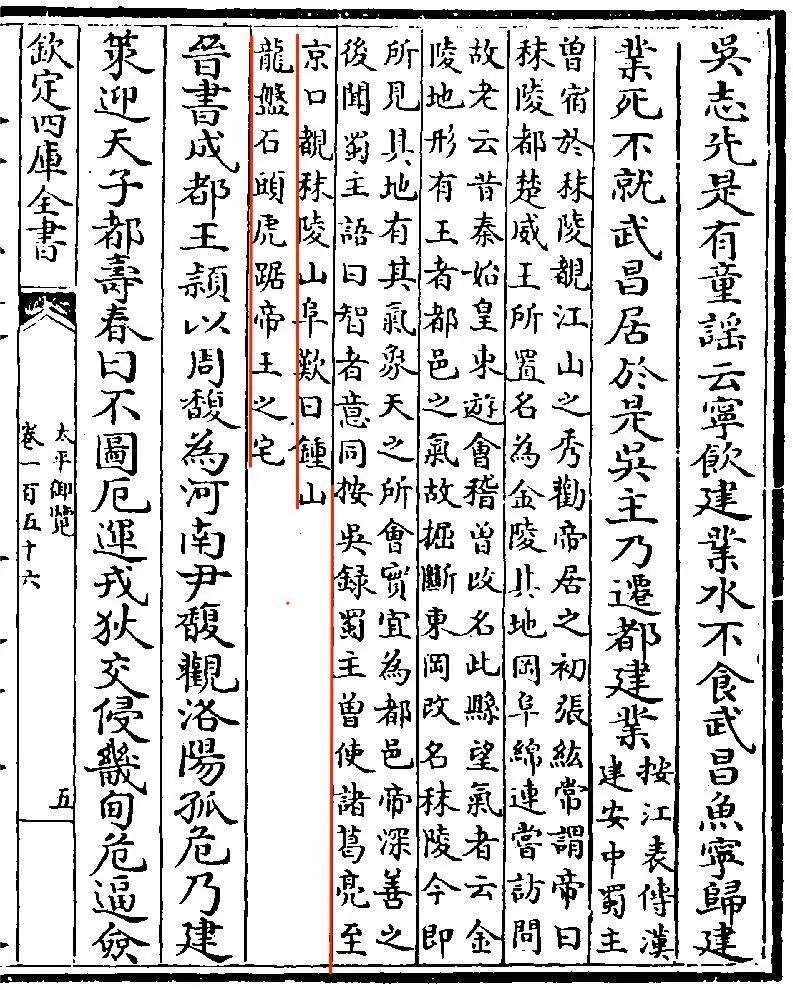 吳志先是有童謡云寧飲建業水不食武昌魚寧歸建
業死不就武昌居於是吳主乃遷都建業
按江表傳漢
建安中蜀主
曽宿於秣陵覩江山之秀勸帝居之初張紘常謂帝曰
秣陵都楚威王所置名為金陵其地岡阜綿連嘗訪問
故老云昔秦始皇東遊會稽曽改名此縣望氣者云金
陵地形有王者都邑之氣故掘斷東岡改名秣陵今即
所見其地有其氣象天之所會實宜為都邑帝深善之
後聞蜀主語曰智者意同按吳録蜀主曽使諸葛亮至
京口覩秣陵山阜歎曰鍾山
龍盤石頭虎踞帝王之宅
晉書成都王頴以周馥為河南尹馥觀洛陽孤危乃建
策迎天子都壽春曰不圖厄運戎狄交侵畿甸危逼僉
欽定四庫全書
太平御覽
卷一百五十六
五